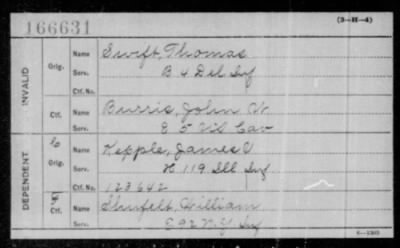 166631
(3-H-4)
INVALID
Orig.
Name Swift, Thomas
Serv. B 4 Del Inf
Ctf. No.
Ctf.
Name Burris, John W.
Serv. E 5 Cav
DEPENDENT
Orig.
Name Kepple, James
Serv. H 119 Ill Inf
Ctf. No. 123642
Ctf.
Name Shufelt, William
Serv. E 92 N.Y. Inf